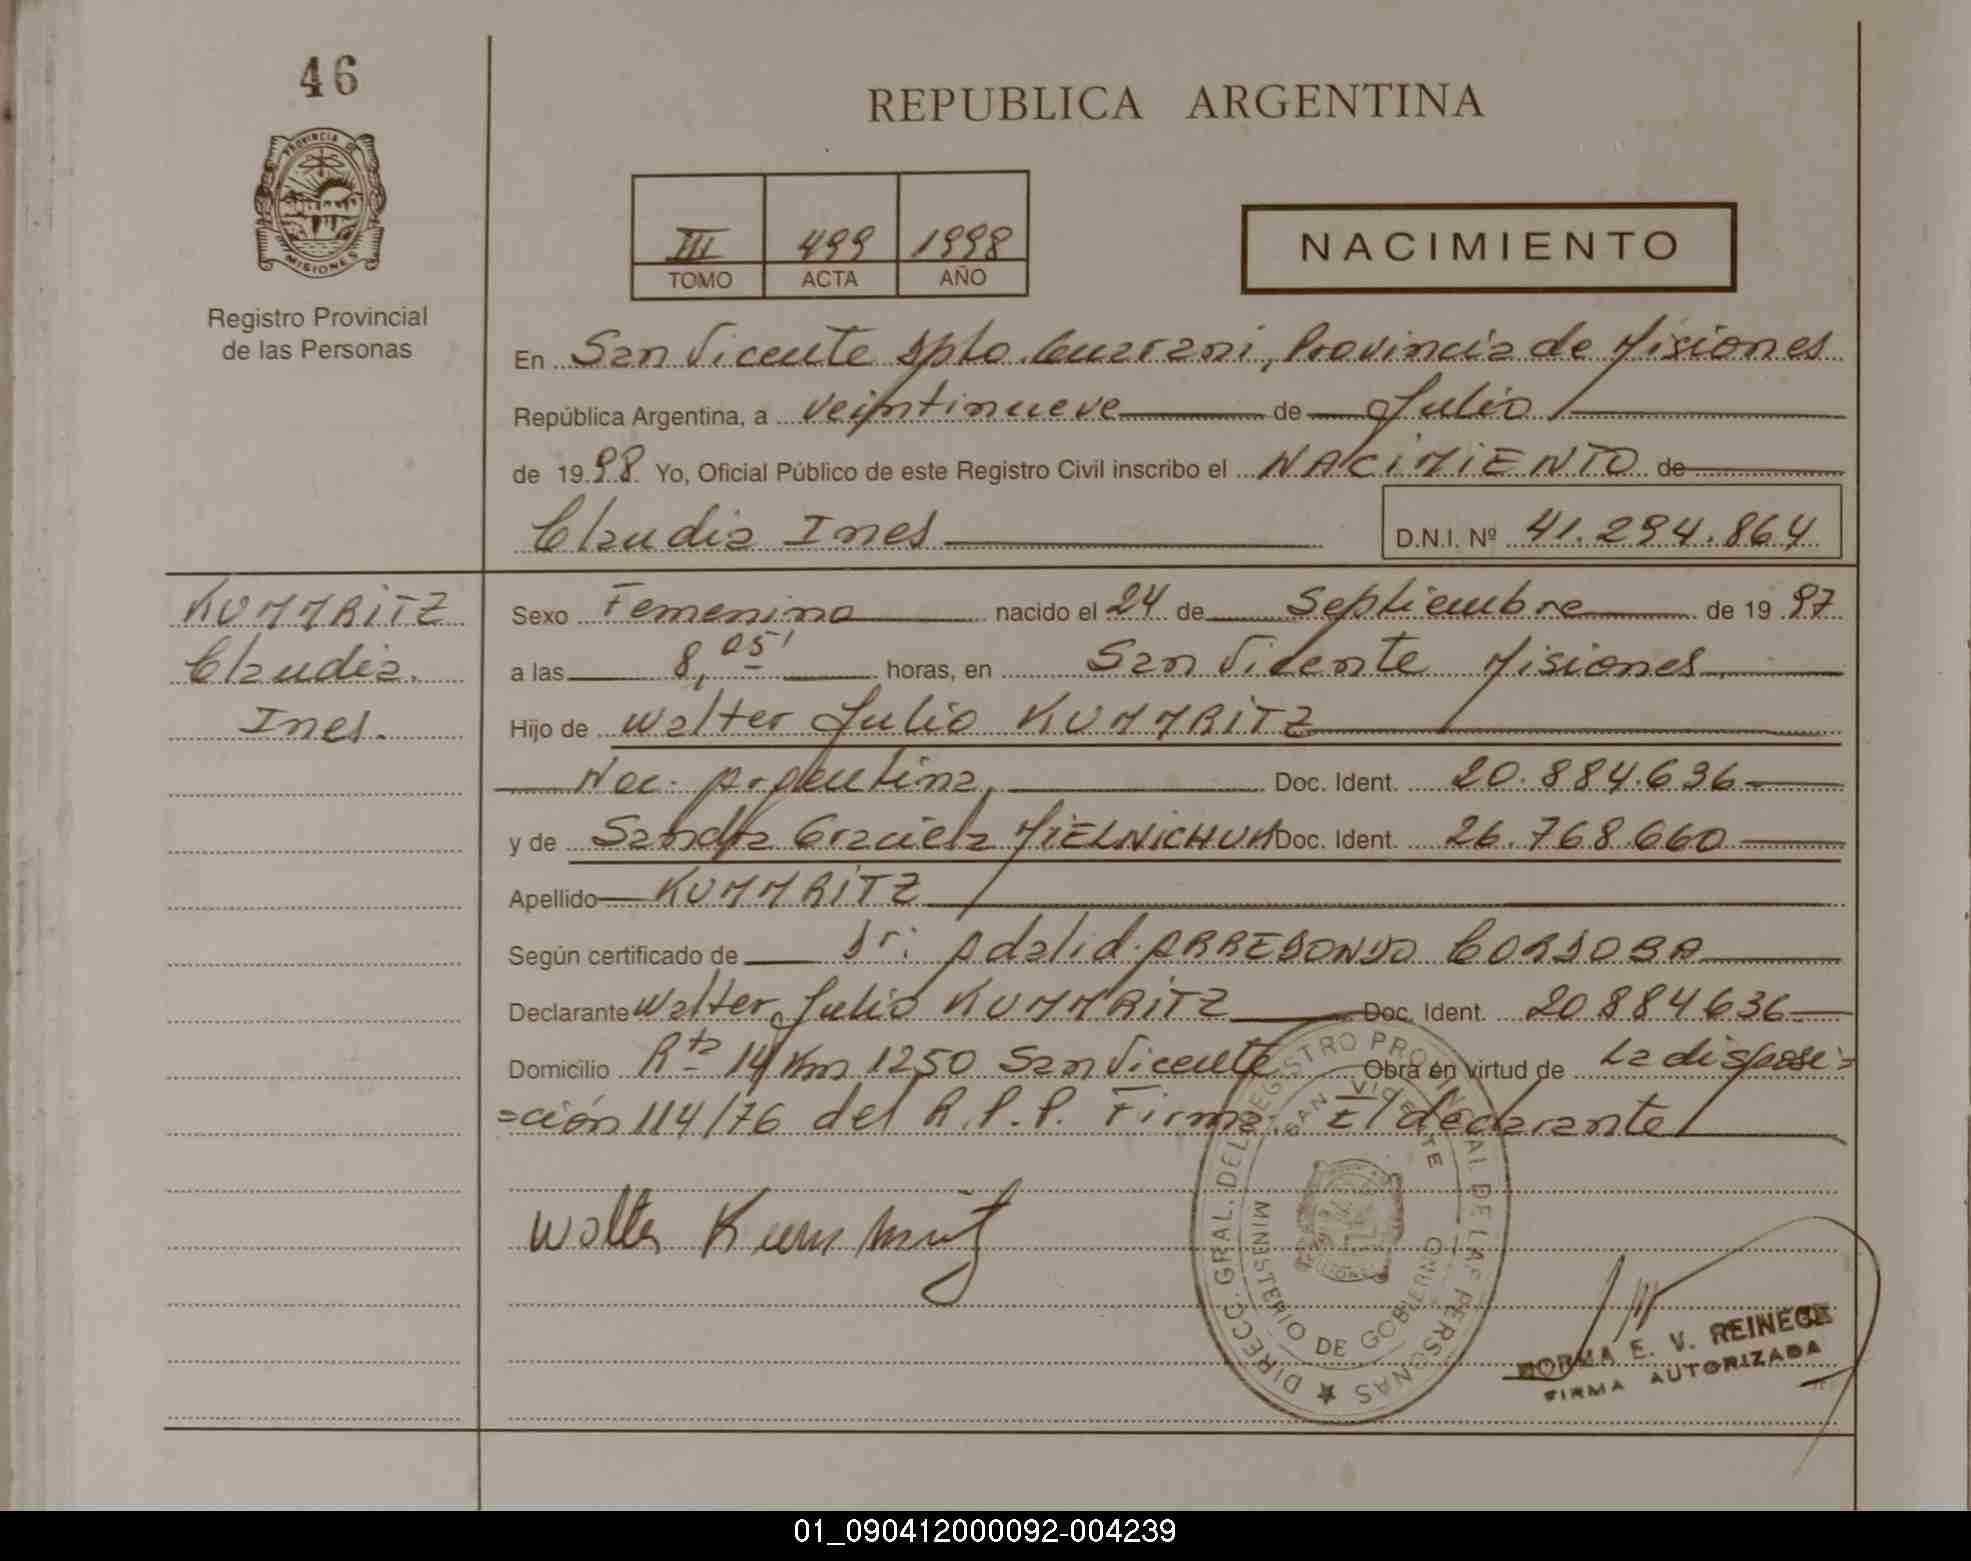 46
REPUBLICA ARGENTINA
PROVINCIA DE
MISIONES
III 499 1998
TOMO ACTA AÑO
NACIMIENTO
Registro Provincial
de las Personas
En San Vicente Dpto. Guarani, Provincia de Misiones
República Argentina, a veintinueve de Julio
de 1998 Yo, Oficial Público de este Registro Civil inscribo el NACIMIENTO de
Claudia Ines D.N.I. Nº 41.294.864
KUMMRITZ
Claudia
Ines.
Sexo Femenino nacido el 24 de Septiembre de 1997
a las 8,05' horas, en San Vicente Misiones
Hijo de Walter Julio KUMMRITZ
Nac. Argentina, Doc. Ident. 20.884.636
y de Sandra Graciela MIELNICHUK Doc. Ident. 26.768.660
Apellido KUMMRITZ
Según certificado de Dr: Adalid ARREDONDO CORDOBA
Declarante Walter Julio KUMMRITZ Doc. Ident. 20884636
Domicilio Rta 14 Km 1250 San Vicente Obra en virtud de La disposi=
=ción 114/76 del R.P.P. Firma: El declarante
Walter Kummritz
DIRECC. GRAL. DEL REGISTRO PROVINCIAL DE LAS PERSONAS
SAN VICENTE
MINISTERIO DE GOBIERNO
NORMA E. V. REINECK
FIRMA AUTORIZADA
01_090412000092-004239